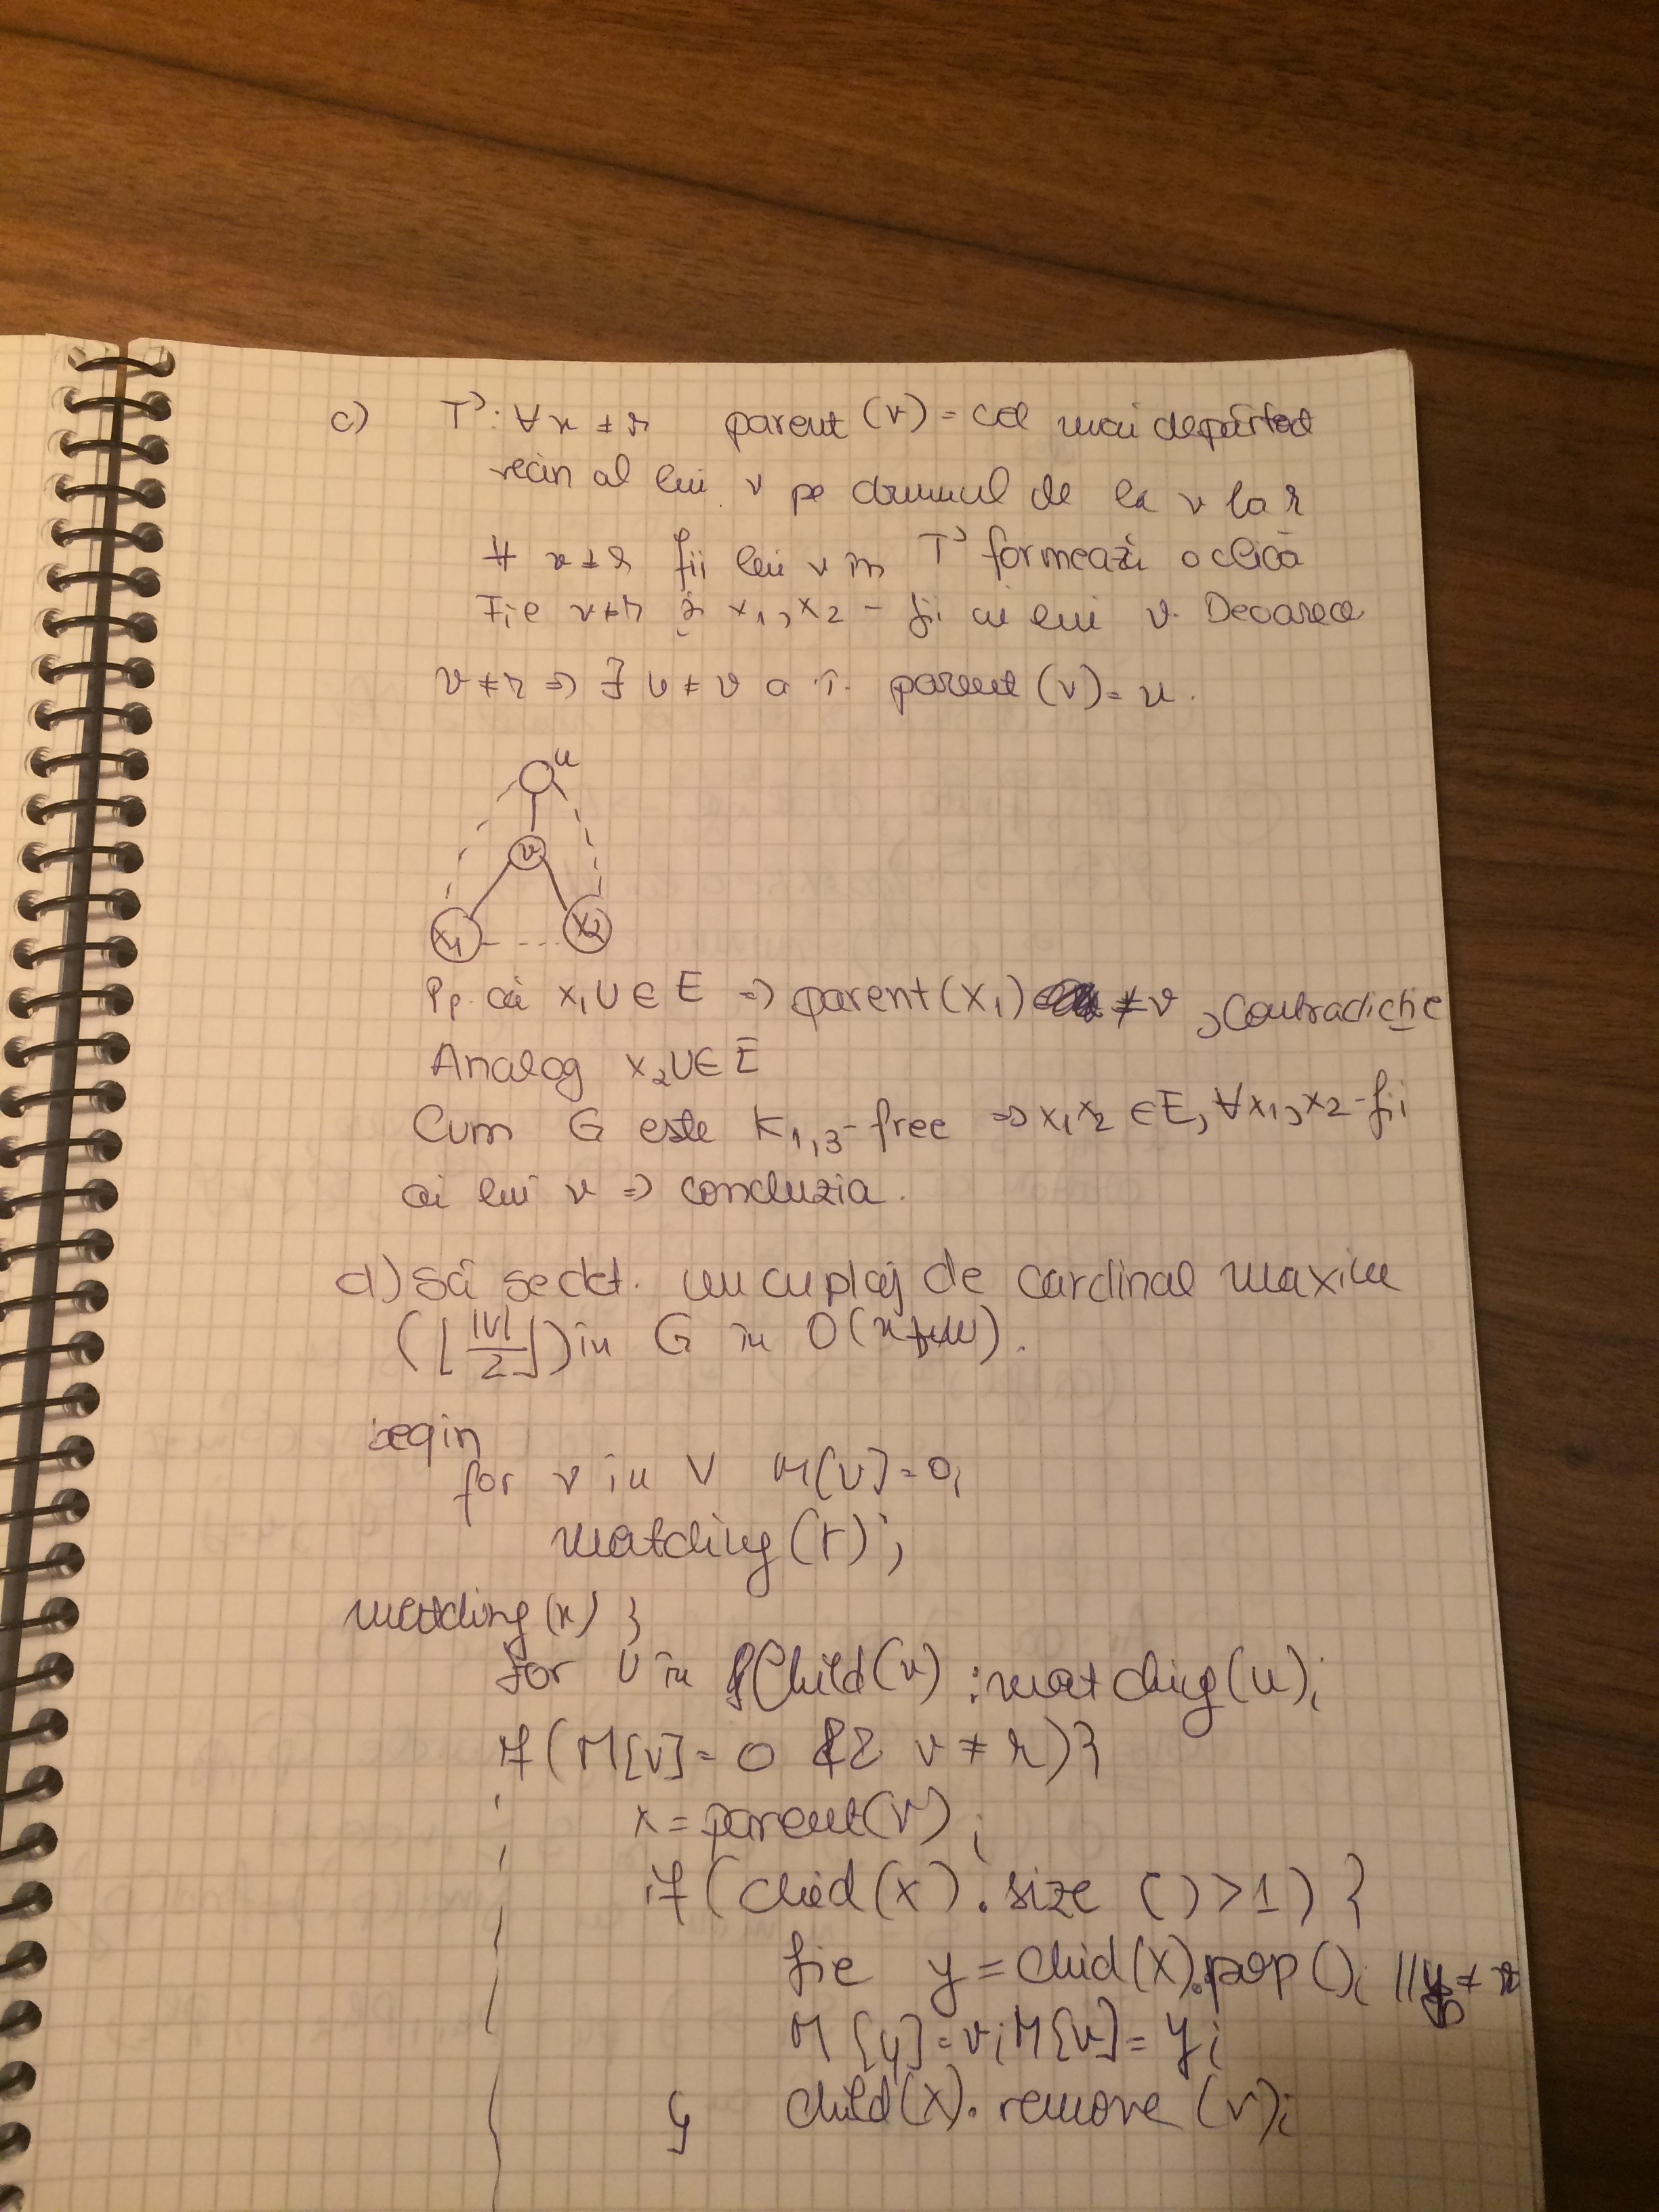 c) T': ∀v ≠ r parent (v) = cel mai depărtat
vecin al lui v pe drumul de la v la r
∀ v ≠ r fii lui v în T' formează o clică
Fie v ≠ r și x₁, x₂ - fii ai lui v. Deoarece
v ≠ r => ∃ u ≠ v a î. parent (v) = u.
u
v
x₁ x₂
Pp. că x₁u ∈ E => parent (x₁) ≠ v, contradicție
Analog x₂u ∈ E
Cum G este K₁,₃-free => x₁x₂ ∈ E, ∀x₁, x₂ - fii
ai lui v => concluzia.
d) Să se det. un cuplaj de cardinal maxim
(⌊|V|/2⌋) în G în O(n+m).
begin
for v in V M[v]=0;
matching (r);
matching (v) {
for u în Child(v) : matching (u);
if (M[v] = 0 && v ≠ r) {
x = parent(v);
if (child (x). size () > 1) {
fie y = child (x).pop(); // y ≠ v
M[y] = v; M[v] = y;
} child(x). remove (v);